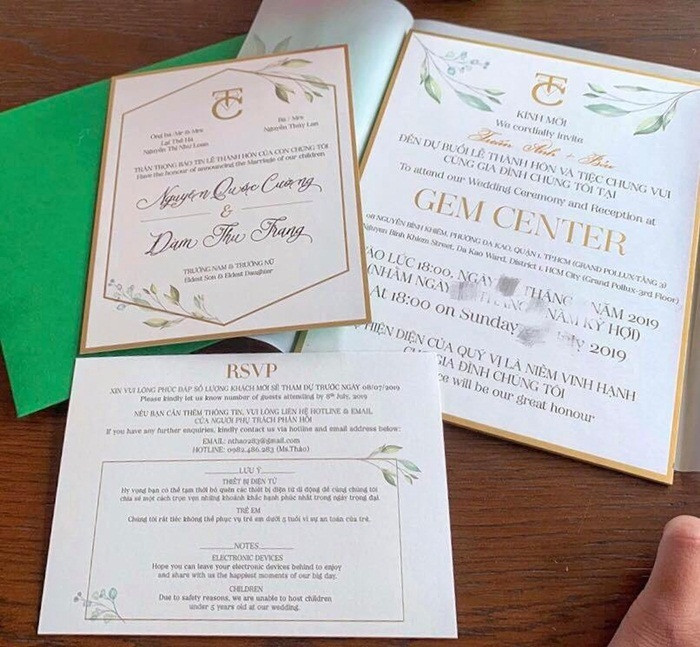 TC
Ông bà/Mr & Mrs
Lại Thế Hà
Nguyễn Thị Như Loan
Bà / Mrs
Nguyễn Thúy Lan
TRÂN TRỌNG BÁO TIN LỄ THÀNH HÔN CỦA CON CHÚNG TÔI
Have the honour of announcing the Marriage of our children
Nguyễn Quốc Cường
&
Đàm Thu Trang
TRƯỞNG NAM & TRƯỞNG NỮ
Eldest Son & Eldest Daughter
TC
KÍNH MỜI
We cordially invite
Tuấn Anh +
ĐẾN DỰ BUỔI LỄ THÀNH HÔN VÀ TIỆC CHUNG VUI
CÙNG GIA ĐÌNH CHÚNG TÔI TẠI
To attend our Wedding Ceremony and Reception at
GEM CENTER
08 NGUYỄN BỈNH KHIÊM, PHƯỜNG ĐA KAO, QUẬN 1, TP.HCM (GRAND POLLUX-TẦNG 3)
Nguyen Binh Khiem Street, Da Kao Ward, District 1, HCM City (Grand Pollux-3rd Floor)
VÀO LÚC 18:00, NGÀY THÁNG NĂM 2019
(NHẰM NGÀY THÁNG NĂM KỶ HỢI)
At 18:00 on Sunday July 2019
HIỆN DIỆN CỦA QUÝ VỊ LÀ NIỀM VINH HẠNH
CHO GIA ĐÌNH CHÚNG TÔI
will be our great honour
RSVP
XIN VUI LÒNG PHÚC ĐÁP SỐ LƯỢNG KHÁCH MỜI SẼ THAM DỰ TRƯỚC NGÀY 08/07/2019
Please kindly let us know number of guests attending by 8th July, 2019
NẾU BẠN CẦN THÊM THÔNG TIN, VUI LÒNG LIÊN HỆ HOTLINE & EMAIL
CỦA NGƯỜI PHỤ TRÁCH PHẢN HỒI
If you have any further enquiries, kindly contact us via hotline and email address below:
EMAIL: nthao283@gmail.com
HOTLINE: 0982.486.283 (Ms.Thảo)
LƯU Ý
THIẾT BỊ ĐIỆN TỬ
Hy vọng bạn có thể tạm thời bỏ quên các thiết bị điện tử di động để cùng chúng tôi
chia sẻ một cách trọn vẹn những khoảnh khắc hạnh phúc nhất trong ngày trọng đại.
TRẺ EM
Chúng tôi rất tiếc không thể phục vụ trẻ em dưới 5 tuổi vì sự an toàn của trẻ.
NOTES
ELECTRONIC DEVICES
Hope you can leave your electronic devices behind to enjoy
and share with us the happiest moments of our big day.
CHILDREN
Due to safety reasons, we are unable to host children
under 5 years old at our wedding.